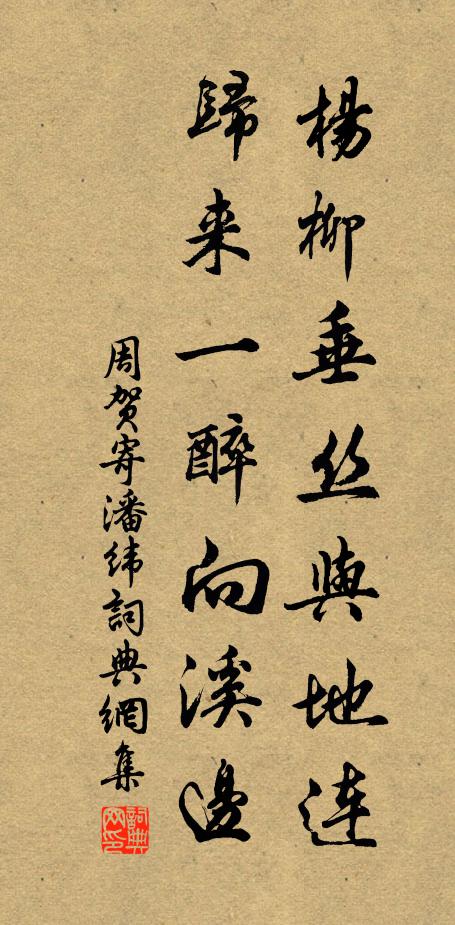 楊柳垂丝與地連
歸来一醉向溪邊
周贺寄潘緯詞典網集
詞典網印